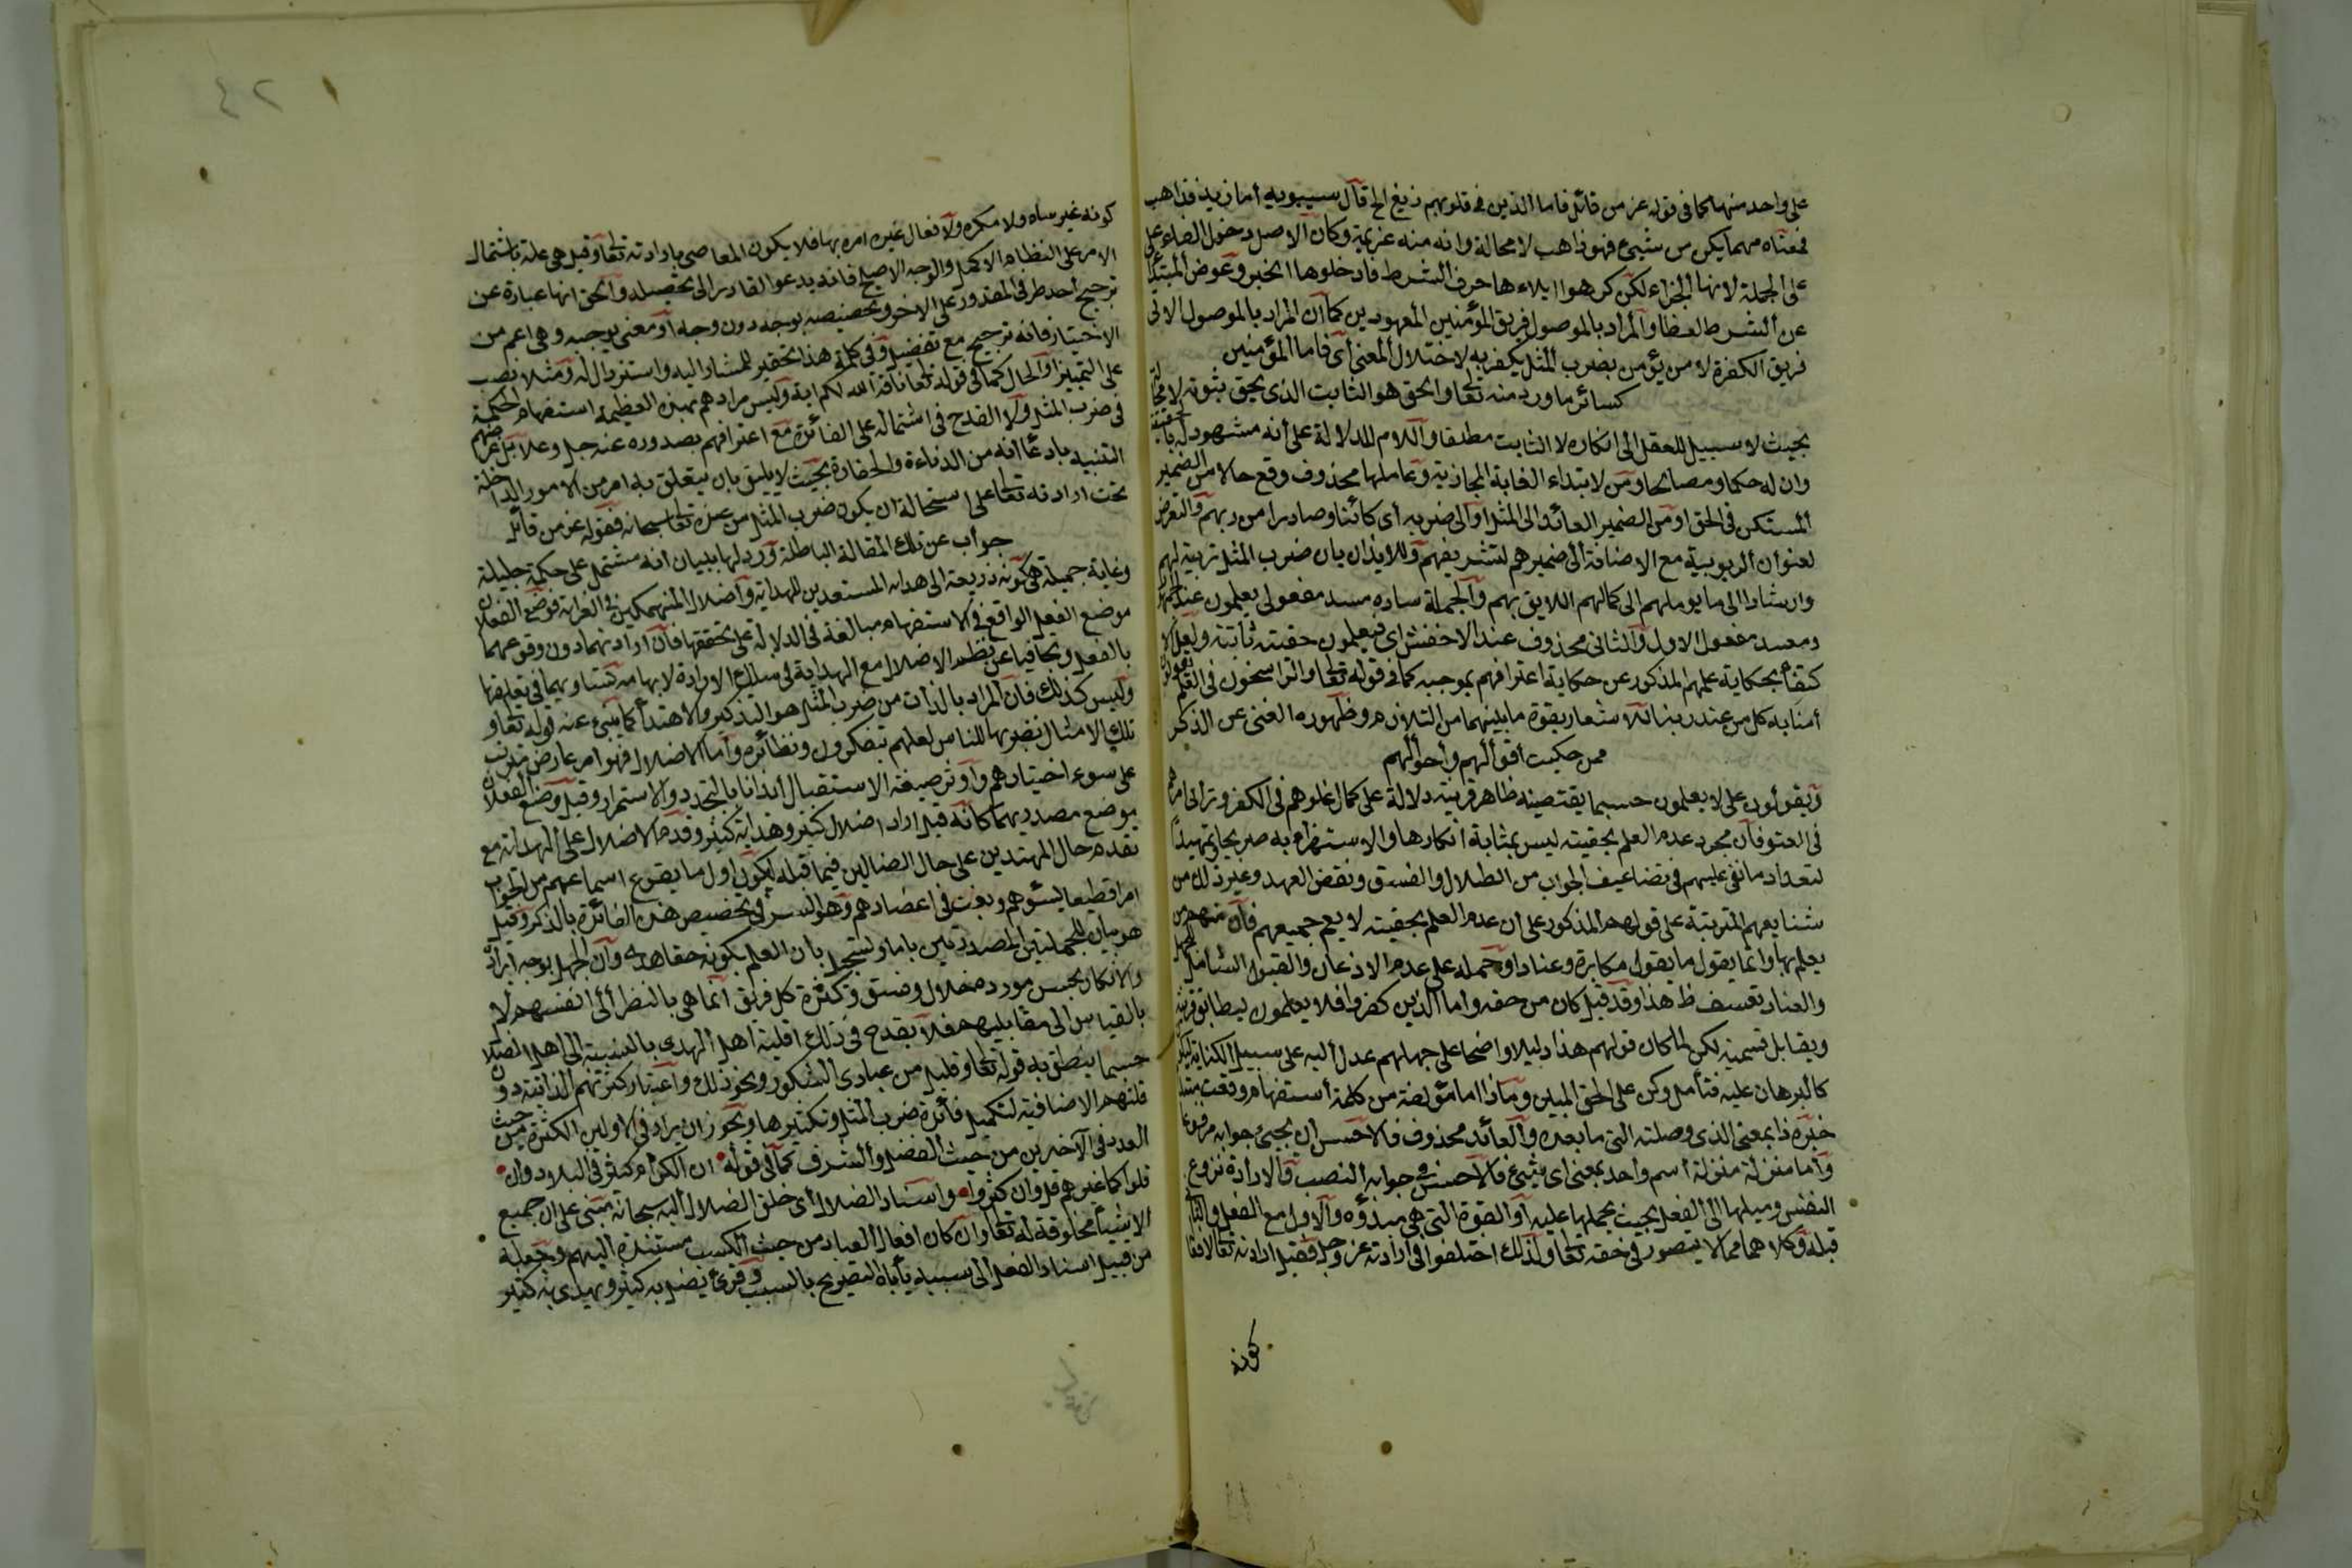 على واحد منهما كما في قوله عز من قائل فاما الذين في قلوبهم زيغ الخ قال سيبويه أما زيد فذاهب
فمعناه مهما يكن من شيء فهو ذاهب لا محالة وانه منه عزيمة وكان الاصل دخول الفاء على
على الجملة لانها الجزاء لكن كرهوا ايلاءها حرف الشرط فادخلوها الخبر وعوض المبتدأ
عن الشرط لفظا والمراد بالموصول فريق المؤمنين المعهودين كما ان المراد بالموصول الاتى
فريق الكفرة لا من يؤمن بضرب المثل يكفر به لاختلال المعنى أي فاما المؤمنين
كسائر ما ورد منه تعالى والحق هو الثابت الذي يحق ثبوته لا محالة
بحيث لا سبيل للعقل الى انكاره لا الثابت مطلقا واللام للدلالة على أنه مشهود له بالحقيقة
وان له حكما ومصالحا ومن لابتداء الغاية المجازية وعاملها محذوف وقع حالا من الضمير
المستكن في الحق او من الضمير العائد الى المثل أو الى ضربه أي كائنا وصادرا من ربهم والتعرض
لعنوان الربوبية مع الاضافة الى ضميرهم لتشريفهم وللايذان بان ضرب المثل تربية لهم
وارشادا الى ما يوصلهم الى كمالهم اللايق بهم والجملة سادة مسد مفعولي يعلمون عند الجمهور
ومسد مفعول الاول والثاني محذوف عند الاخفش اى فيعلمون حقيته ثابتة ولعل الا
كتفاء بحكاية علمهم المذكور عن حكاية اعترافهم بموجبه كما في قوله تعالى والراسخون في العلم يقولون
أمنا به كل من عند ربنا للاشعار بقوة ما بينهما من التلازم وظهوره المغنى عن الذكر
ممن حكيت أقوالهم وأحوالهم
ويقولون على لا يعلمون حسبما يقتضيه ظاهر قرينه دلالة على كمال غلوهم في الكفر وترامى امرهم
في العتو فان مجرد عدم العلم بحقيته ليس بمثابة انكارها والاستهزاء به صريحا وتمهيداً
لتعداد ما نعى عليهم في تضاعيف الجواب من الضلال والفسق ونقض العهد وغير ذلك من
شنايعهم المترتبة على قولهم المذكور على ان عدم العلم بحقيته لا يعم جميعهم فان منهم من
يعلم بها وانما يقول ما يقول مكابرة وعنادا وحمله على عدم الاذعان والقبول الشامل للجهل
والعناد تعسف ظ هذا وقد قيل كان من حقه واما الذين كفروا فلا يعلمون ليطابق قرينه
ويقابل قسيمه لكن لما كان قولهم هذا دليلا واضحا على جهلهم عدل اليه على سبيل الكناية ليكون
كالبرهان عليه فتأمل وكن على الحق المبين وماذا اما مؤلفة من كلمة أستفهام وقعت مبتدأ
خبره ذا بمعنى الذي وصلته التي ما بعده والعائد محذوف فالاحسن ان يجيء جوابه مرفوعا
واما منزلة منزلة اسم واحد بمعنى اى شيئ فالاحسن في جوابه النصب والارادة نزوع
النفس وميلها الى الفعل بحيث يحملها عليه أو القوة التي هي مبدؤه والاول مع الفعل والثانى
قبله وكلاهما مما لا يتصور في حقه تعالى ولذلك اختلفوا في ارادته عز وجل فقيل ارادته تعالى لافعاله
كونه
٤٢
كونه غير ساه ولا مكره ولافعال غيره امره بها فلا يكون المعاصى بارادته تعالى وقيل هي علمه باشتمال
الامر على النظام الاكمل والوجه الاصلح فانه يدعو القادر الى تحصيله والحق انها عبارة عن
ترجيح أحد طرفى المقدور على الاخر وتخصيصه بوجه دون وجه أو معنى يوجبه وهي اعم من
الاختيار فانه ترجيح مع تفضيل وفي كلمة هذا تحقير للمشار اليه واسترذال له ومثلا نصب
على التمييز أو الحال كما في قوله تعالى ناقة الله لكم اية وليس مرادهم بهذه العظيمة استفهام الحكمة
في ضرب المثل ولا القدح في اشتماله على الفائدة مع اعترافهم بصدوره عنه جل وعلا بل غرضهم
التنبيه بادعاء انه من الدناءة والحقارة بحيث لا يليق بان يتعلق به امر من الامور الداخلة
تحت ارادته تعالى على استحالة ان يكون ضرب المثل من عنده تعالى سبحانه فقوله عز من قائل
جواب عن تلك المقالة الباطلة ورد لها ببيان انه مشتمل على حكمة جليلة
وغاية جميلة هي كونه ذريعة الى هداية المستعدين للهداية واضلال المنهمكين في الغواية فوضع الفعلان
موضع الفعل الواقع في الاستفهام مبالغة في الدلالة على تحققها فان ارادتهما دون وقوعهما
بالفعل وتجافيا عن نظم الاضلال مع الهداية في سلك الارادة لايهامه تساويهما في تعلقها
وليس كذلك فان المراد بالذات من ضرب المثل هو التذكير والاهتداء كما ينبئ عنه قوله تعالى و
تلك الامثال نضربها للناس لعلهم يتفكرون ونظائره واما الاضلال فهو امر عارض مترتب
على سوء اختيارهم وأوثر صيغة الاستقبال ايذانا بالتجدد والاستمرار وقيل وضع الفعلان
موضع مصدريهما كانه قيل اراد اضلال كثير وهداية كثير وقدم الاضلال على الهداية مع
تقدم حال المهتدين على حال الضالين فيما قبله ليكون اول ما يقرع اسماعهم من الجواب
امرا فظيعا يسؤهم ويفت في اعضادهم وهو السر في تخصيص هذه الفائدة بالذكر وقيل
هو بيان للجملتين المصدرتين باما وتسجيل بان العلم بكونه حقا هدى وان الجهل بوجه ايراده
والانكار بحسن مورده ضلال وفسق وكثرة كل فريق انما هى بالنظر الى انفسهم لا
بالقياس الى مقابليهم فلا يقدح في ذلك اقلية اهل الهدى بالنسبة الى اهل الضلال
حسبما ينطق به قوله تعالى وقليل من عبادى الشكور ونحو ذلك واعتبار كثرتهم الذاتية دون
قلتهم الاضافية لتكميل فائدة ضرب المثل وتكثيرها ويجوز ان يراد في الاولين الكثرة من حيث
العدد في الآخرين من حيث الفضل والشرف كما في قوله ان الكرام كثير في البلاد وان
قلوا كما غيرهم قل وان كثروا واسناد الضلال أي خلق الضلال اليه سبحانه مبنى على ان جميع
الاشياء مخلوقة له تعالى وان كان افعال العباد من حيث الكسب مستندة اليهم وجعله
من قبيل اسناد الفعل الى سببه يأباه التصريح بالسبب وقرئ يضل به كثير ويهدى به كثير